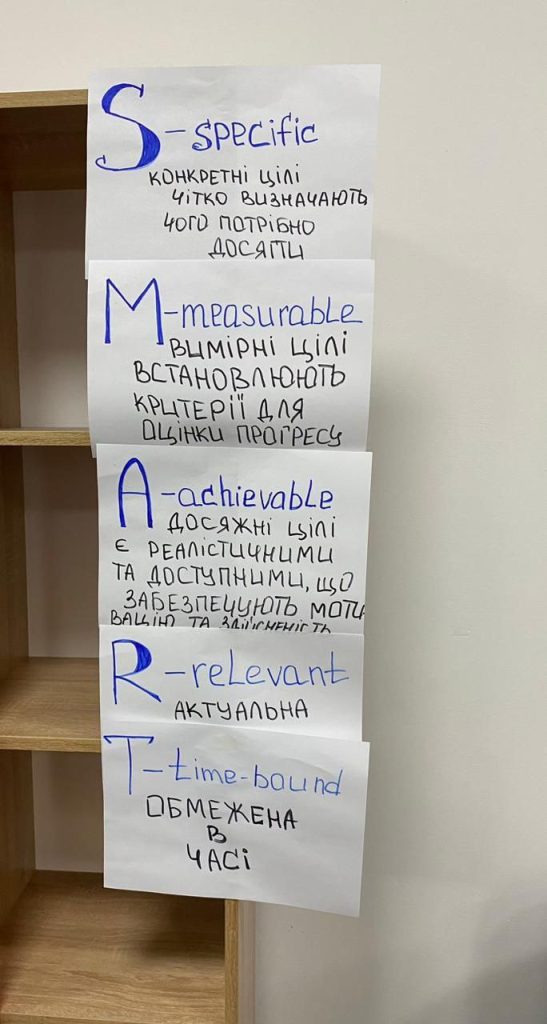 S - specific
КОНКРЕТНІ ЦІЛІ
ЧІТКО ВИЗНАЧАЮТЬ
ЧОГО ПОТРІБНО
ДОСЯГТИ
M - measurable
ВИМІРНІ ЦІЛІ
ВСТАНОВЛЮЮТЬ
КРИТЕРІЇ ДЛЯ
ОЦІНКИ ПРОГРЕСУ
A - achievable
ДОСЯЖНІ ЦІЛІ
Є РЕАЛІСТИЧНИМИ
ТА ДОСТУПНИМИ, ЩО
ЗАБЕЗПЕЧУЮТЬ МОТИ
ВАЦІЮ ТА ЗДІЙСНЕНІСТЬ
R - relevant
АКТУАЛЬНА
T - time-bound
ОБМЕЖЕНА
В
ЧАСІ